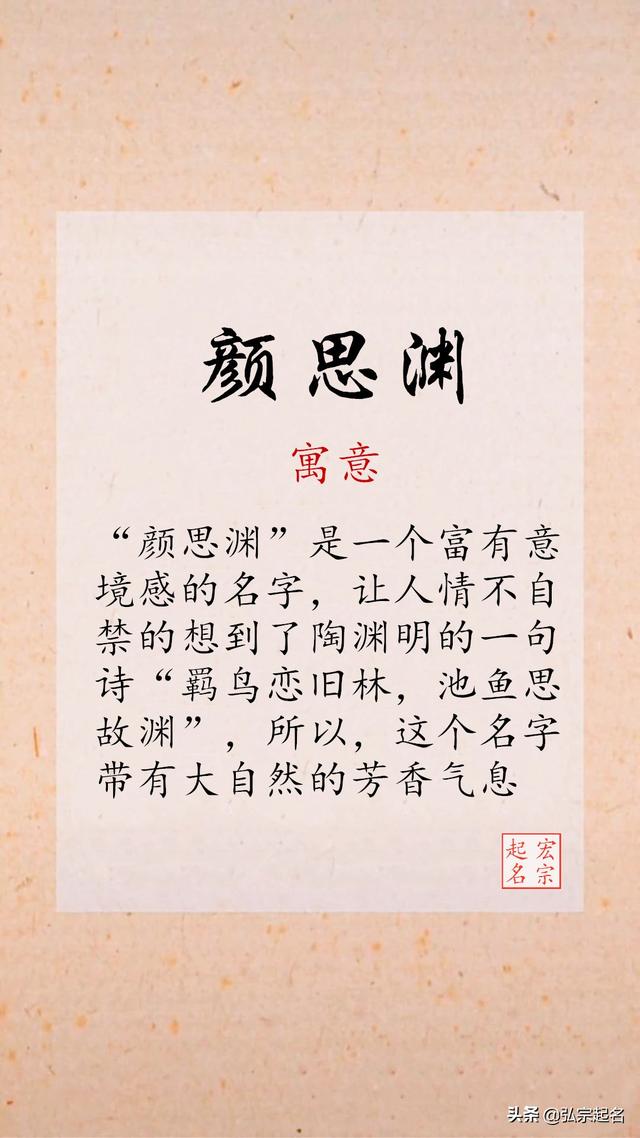 颜思渊
寓意
“颜思渊”是一个富有意
境感的名字，让人情不自
禁的想到了陶渊明的一句
诗“羁鸟恋旧林，池鱼思
故渊”，所以，这个名字
带有大自然的芳香气息
宏宗
起名
头条 @弘宗起名